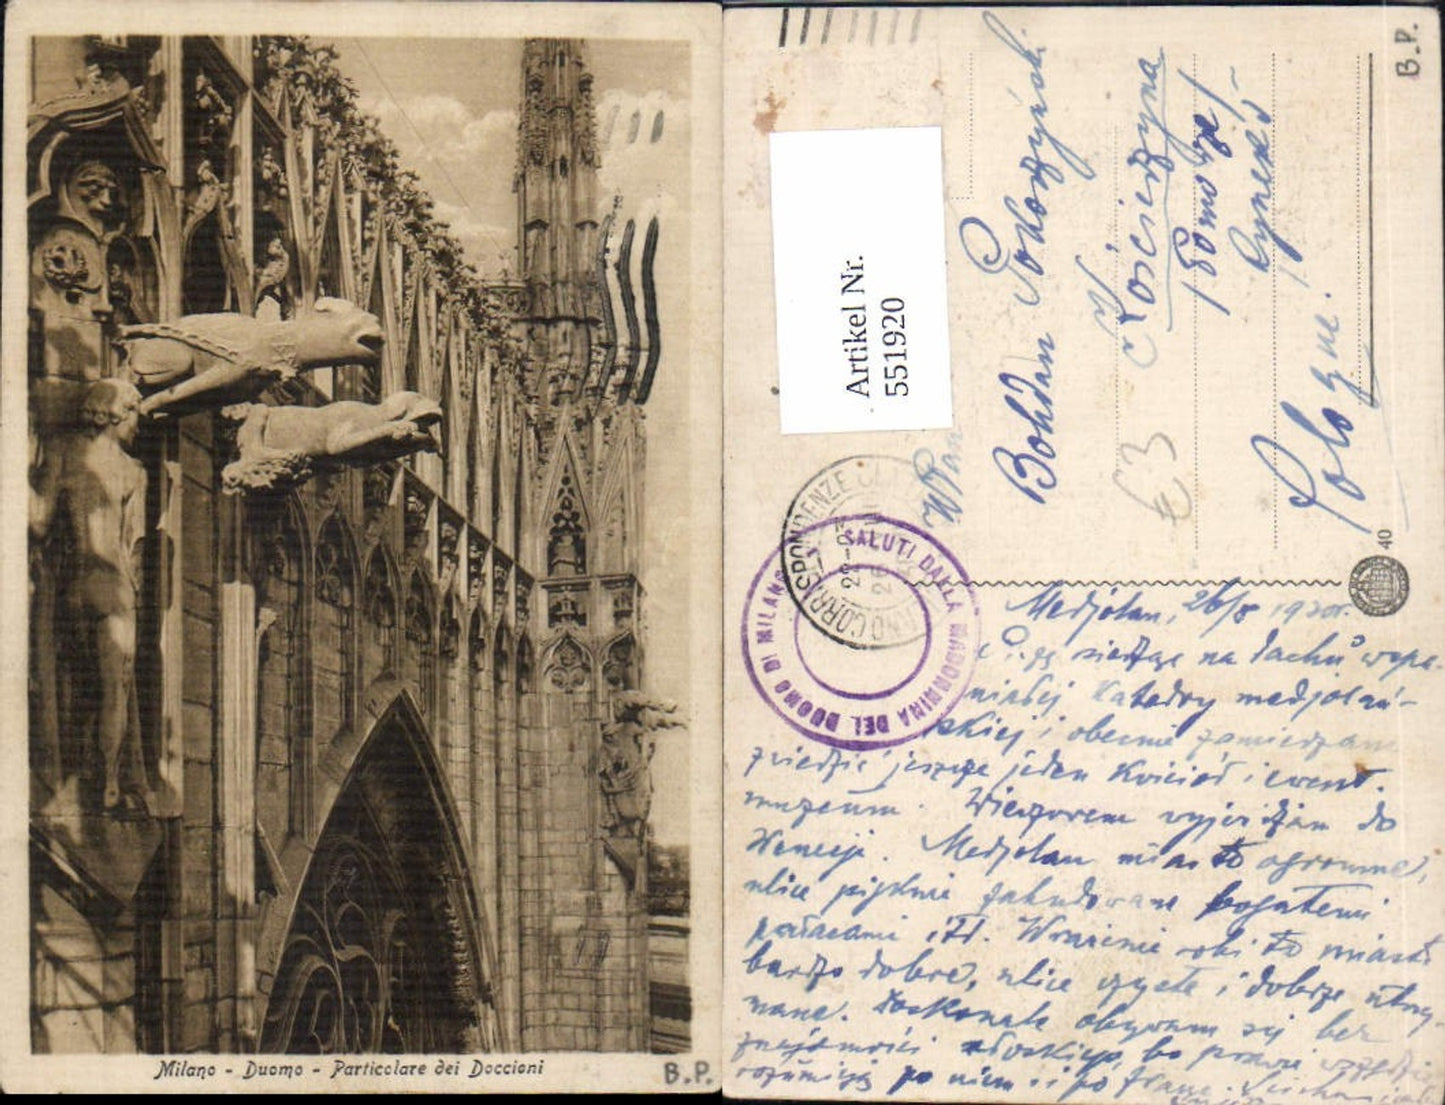 Milano - Duomo - Particolare dei Doccioni
B.P.
B.P.
Artikel Nr.
551920
W Pan
Bohdan
Kościerzyna
/ Pomorze /
Rynek
Pologne!
€3
40
CORRISPONDENZE
22-23
26
SALUTI DALLA MADONNINA DEL DUOMO DI MILANO
Medjolan, 26/8
siedzę na dachu wspa-
niałej Katedry medjolań-
skiej i obecnie zamierzam
zwiedzić jeszcze jeden kościół i ewent.
muzeum. Wieczorem wyjeżdżam do
Wenecji. Medjolan miasto ogromne,
ulice pięknie zabudowane bogatemi
pałacami itd. Wrażenie robi to miasto
bardzo dobre, ulice czyste i dobrze utrzy-
mane. Doskonale obywam się bez
znajomości włoskiego, bo prawie wszędzie
rozumieją po niem. i po franc.